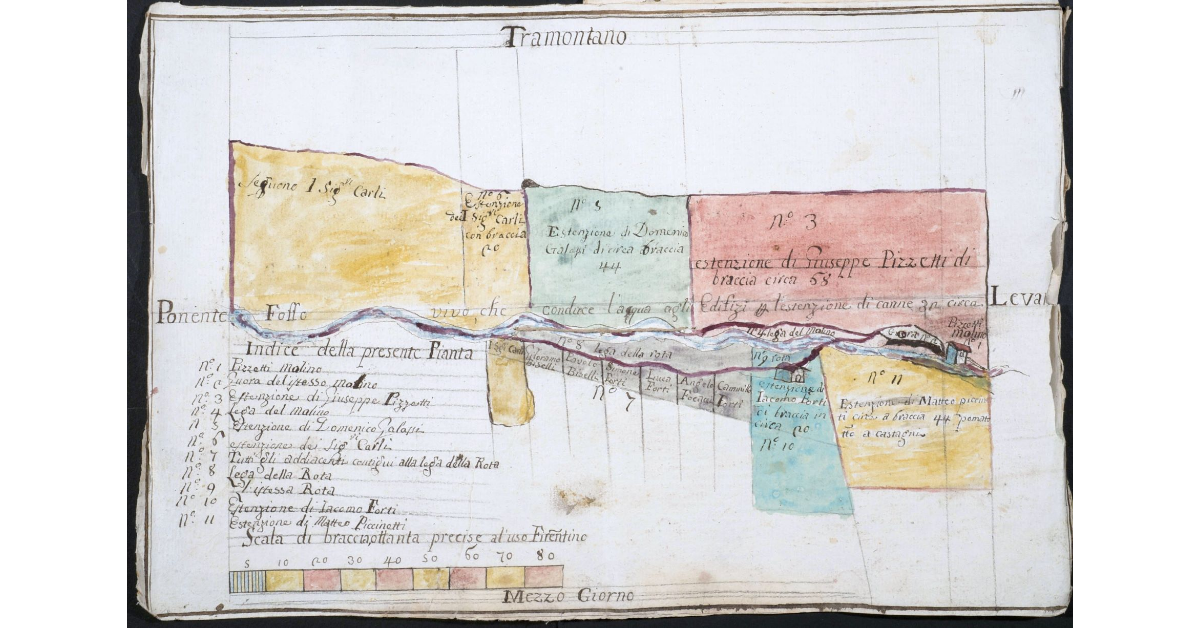 Tramontano
Seguono I Sig.ri Carli
N.o 6
Estenzione
dei Sig.ri Carli
con braccia
20
N.o 5
Estenzione di Domenico
Galopi di circa braccia
44
N.o 3
estenzione di Giuseppe Pizzetti di
braccia circa 68
Ponente
Fosso vivo, che conduce l'acqua agli Edifizi p l'estenzione di canne in circa
Levan
N.o 4 lega del Molino
Gorana
Pizzetti
Molino
N.o 8 lega della rota
Biselli
Paolo
Biselli
Simone
Forti
Luca
Forti
Angelo
Camillo
Forti
N.o 7
N.o 9 rota
estenzione di
Iacomo Forti
di braccia in
circa 20
N.o 10
N.o 11
Estenzione di Matteo piccin
ti circa braccia 44
a castagni
Indice della presente Pianta
N.o 1 Pizzetti Molino
N.o 2 Guora dell'istesso molino
N.o 3 Estenzione di Giuseppe Pizzetti
N.o 4 lega del Molino
N.o 5 estenzione di Domenico Galopi
N.o 6 estenzione dei Sig.ri Carli
N.o 7 Tutti gli addiacenti contigui alla lega della Rota
N.o 8 lega della Rota
N.o 9 l'istessa Rota
N.o 10 Estenzione di Iacomo Forti
N.o 11 Estenzione di Matteo Piccinetti
Scala di braccia ottanta precise al'uso Firentino
5 10 20 30 40 50 60 70 80
Mezzo Giorno